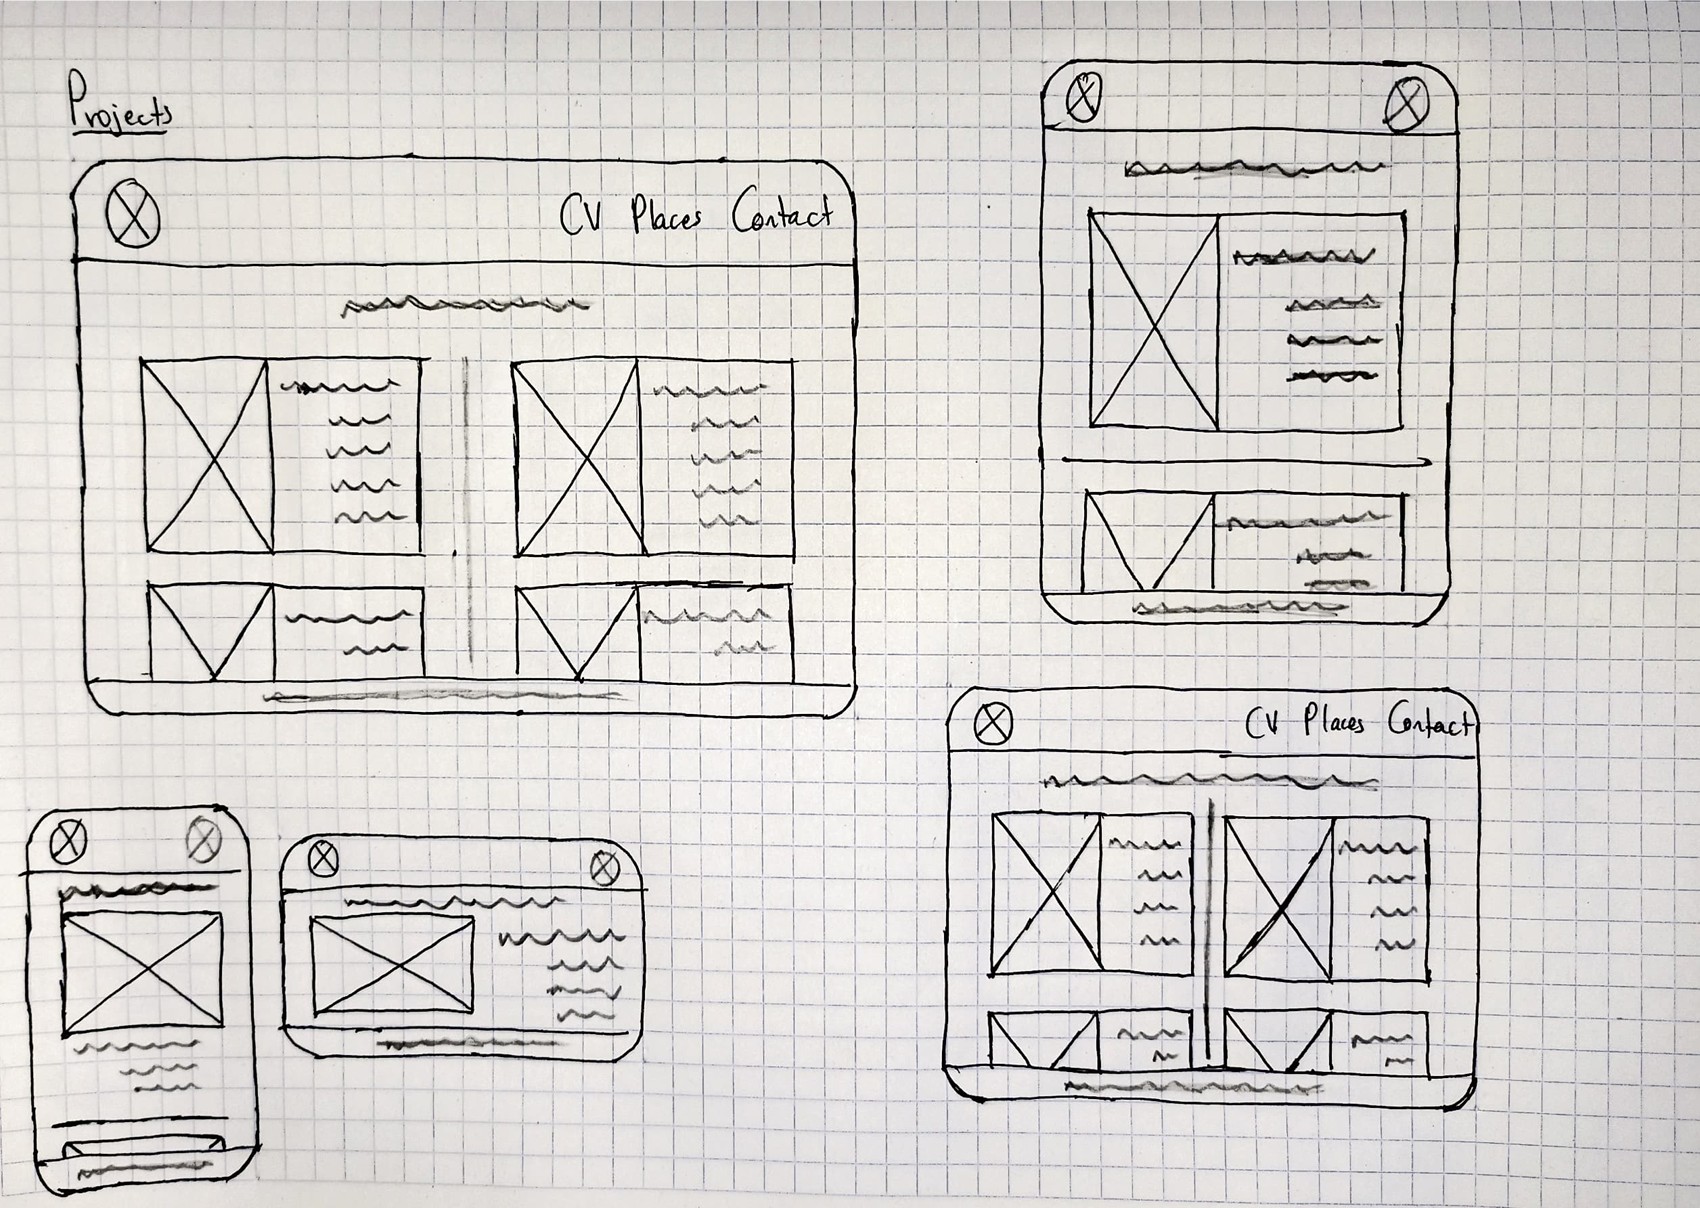 Projects
CV Places Contact
CV Places Contact